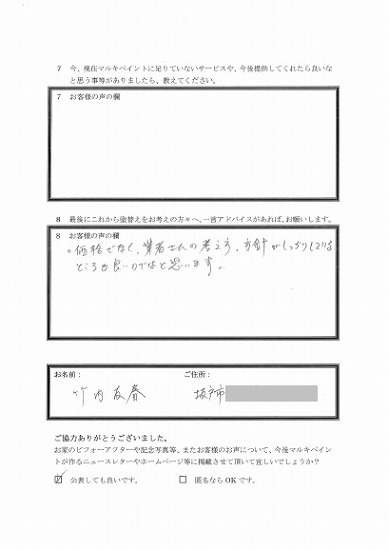 7 今、現在マルキペイントに足りていないサービスや、今後提供してくれたら良いな
と思う事等がありましたら、教えてください。
7 お客様の声の欄
8 最後にこれから塗替えをお考えの方々へ、一言アドバイスがあれば、お願いします。
8 お客様の声の欄
。価格でなく、業者さんの考え方、方針がしっかりしている
ところが良いのでなと思います。
お名前： ご住所：
竹内友春 坂戸市
ご協力ありがとうございました。
お家のビフォーアフターや記念写真等、またお客様のお声について、今後マルキペイン
トが作るニュースレターやホームページ等に掲載させて頂いて宜しいでしょうか？
☑ 公表しても良いです。 □ 匿名ならOKです。